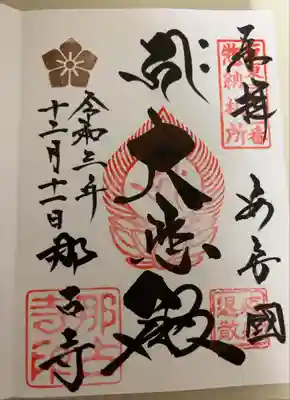 奉拝 安房國
大悲殿
令和三年
十二月十一日 那古寺
那古
寺印